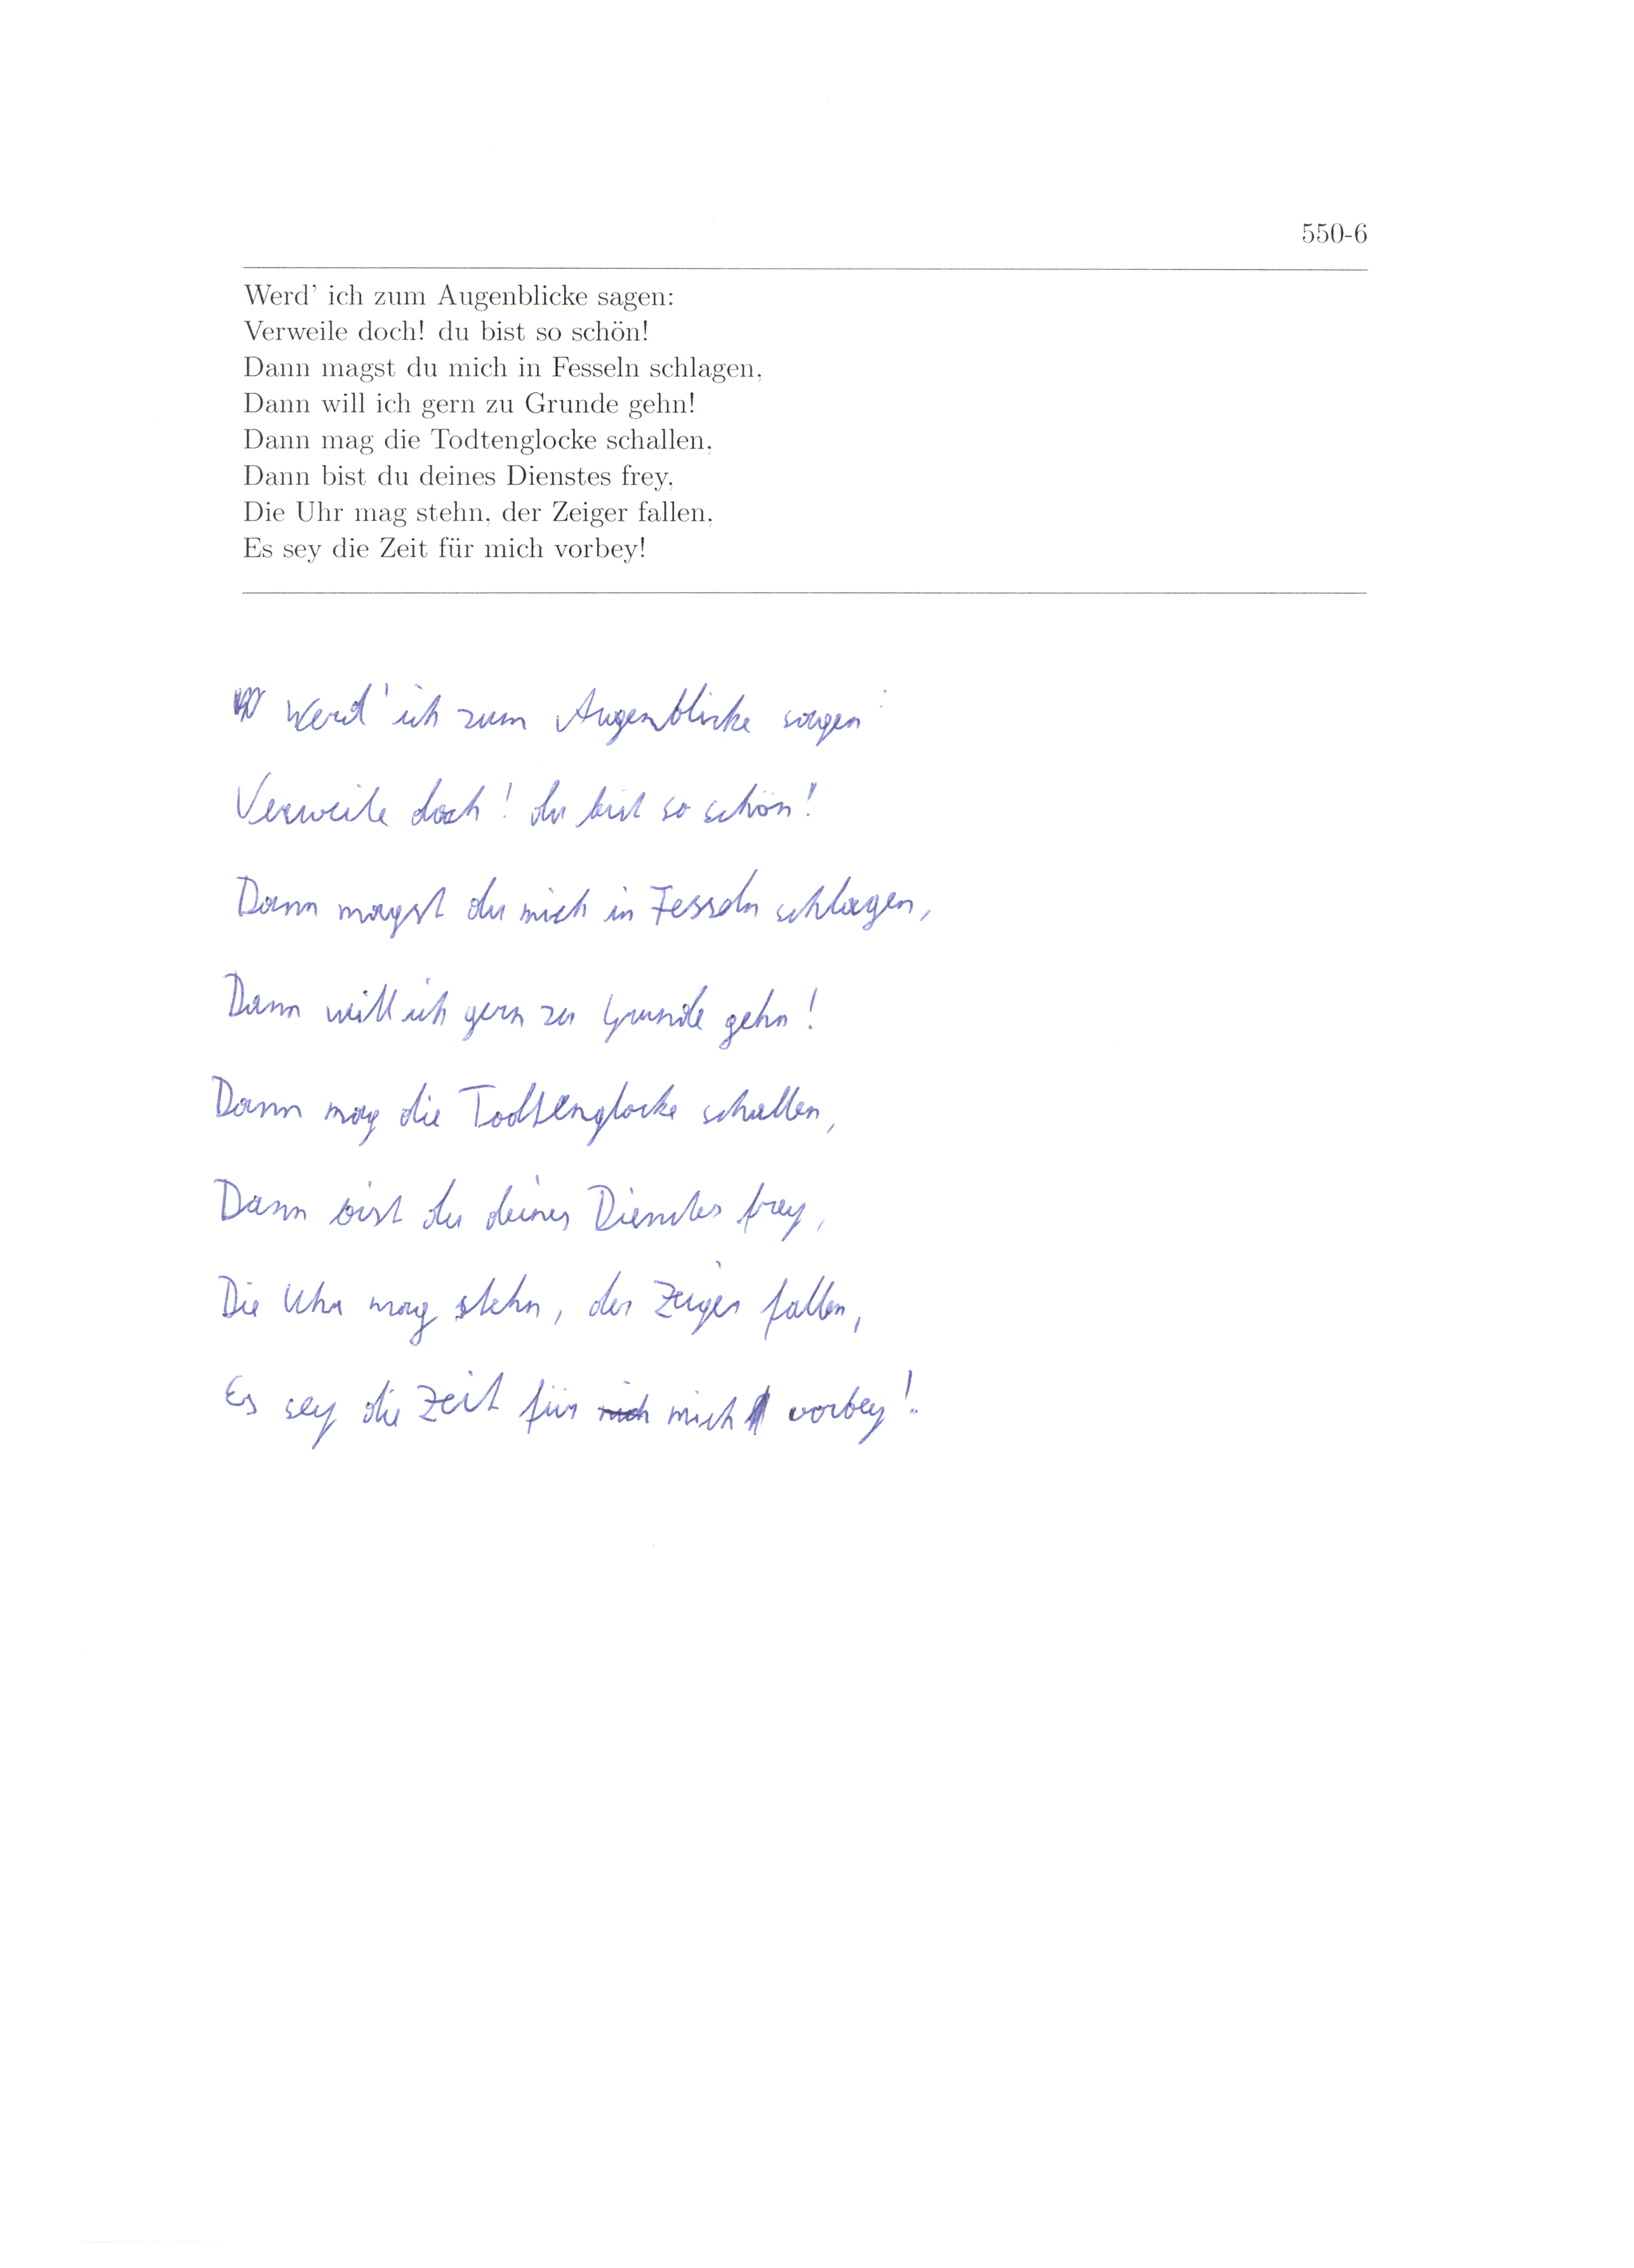 550-6
Werd' ich zum Augenblicke sagen:
Verweile doch! du bist so schön!
Dann magst du mich in Fesseln schlagen,
Dann will ich gern zu Grunde gehn!
Dann mag die Todtenglocke schallen,
Dann bist du deines Dienstes frey,
Die Uhr mag stehn, der Zeiger fallen,
Es sey die Zeit für mich vorbey!
Werd' ich zum Augenblicke sagen:
Verweile doch! du bist so schön!
Dann magst du mich in Fesseln schlagen,
Dann will ich gern zu Grunde gehn!
Dann mag die Todtenglocke schallen,
Dann bist du deines Dienstes frey,
Die Uhr mag stehn, der Zeiger fallen,
Es sey die Zeit für mich vorbey!